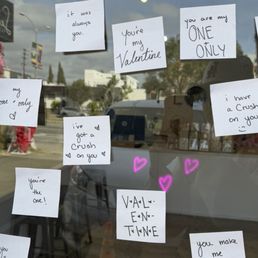 it was
always
you.
You're
my
Valentine
you are my
ONE
ONLY
my
one & only
i have
a Crush
on you
i've
got a
Crush
on you
you're
the
one!
VAL
EN
TINE
You
you make
me